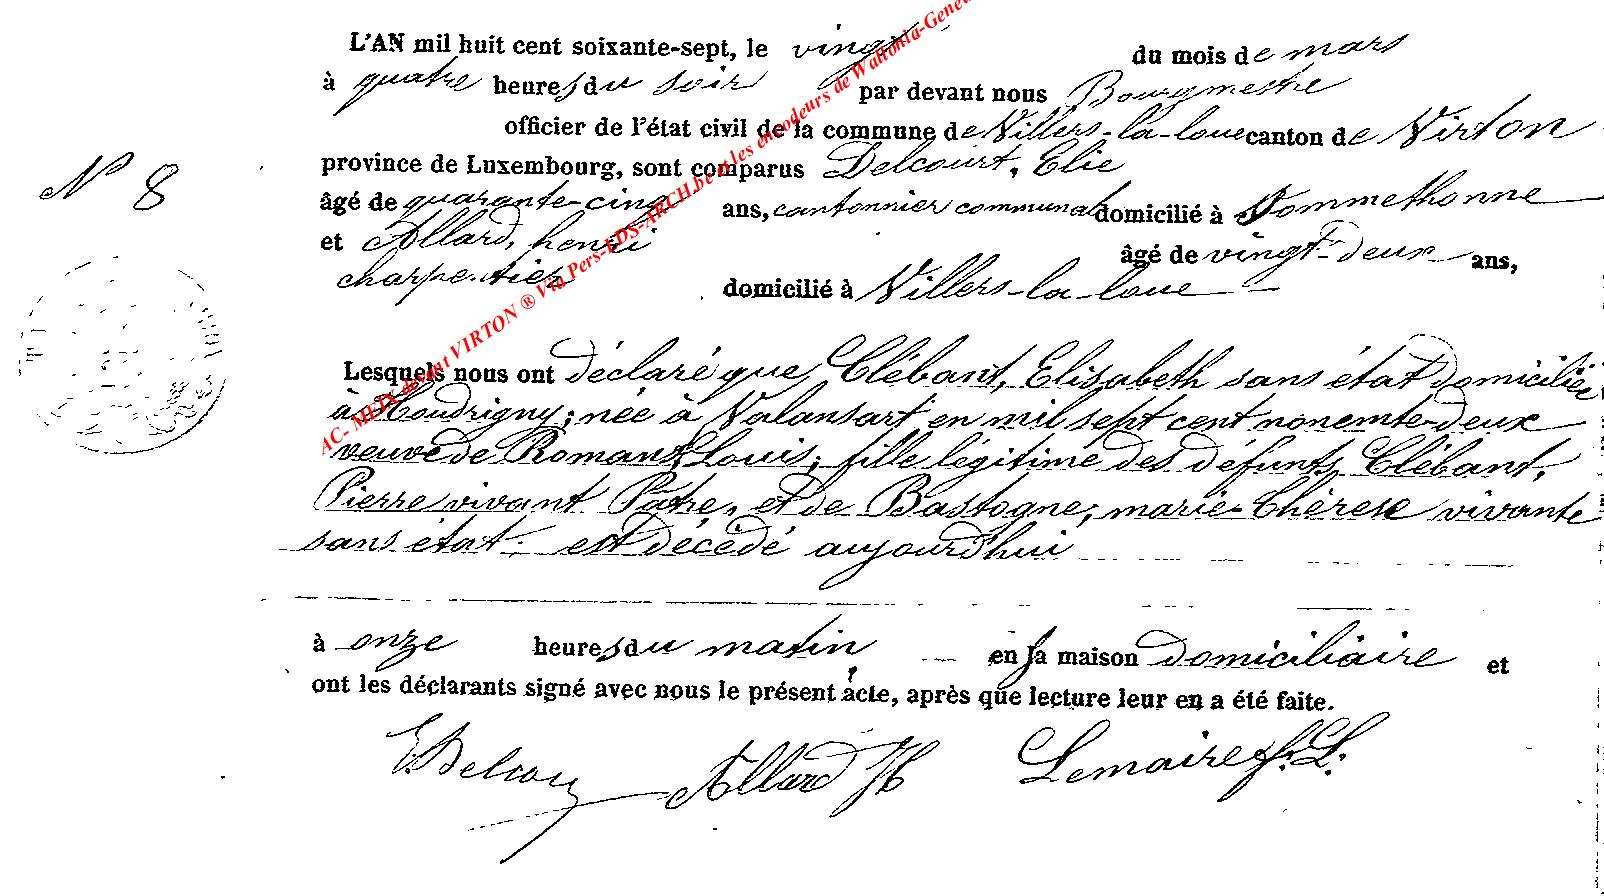 L'AN mil huit cent soixante-sept, le vingt du mois de mars
à quatre heures du soir par devant nous Bourgmestre
officier de l'état civil de la commune de Villers-la-loue canton de Virton
province de Luxembourg, sont comparus Delcourt, Elie
N° 8
âgé de quarante-cinq ans, cantonnier communal domicilié à Sommethonne
et Allard, henri âgé de vingt-deux ans,
charpentier domicilié à Villers-la-loue
Lesquels nous ont déclaré que Clébant, Elisabeth sans état domiciliée
à Houdrigny; née à Valansart en mil sept cent nonante-deux
veuve de Romant, Louis; fille légitime des défunts Clébant,
Pierre vivant Patre, et de Bastogne, marie-Thérèse vivante
sans état; est décédé aujourd'hui
à onze heures du matin en sa maison domiciliaire et
ont les déclarants signé avec nous le présent acte, après que lecture leur en a été faite.
E. Delcour Allard H Lemaire f. L.
AC- METX devant VIRTON ® Via Pers-LDS-ARCH.be et les encodeurs de Wallonia-Genea